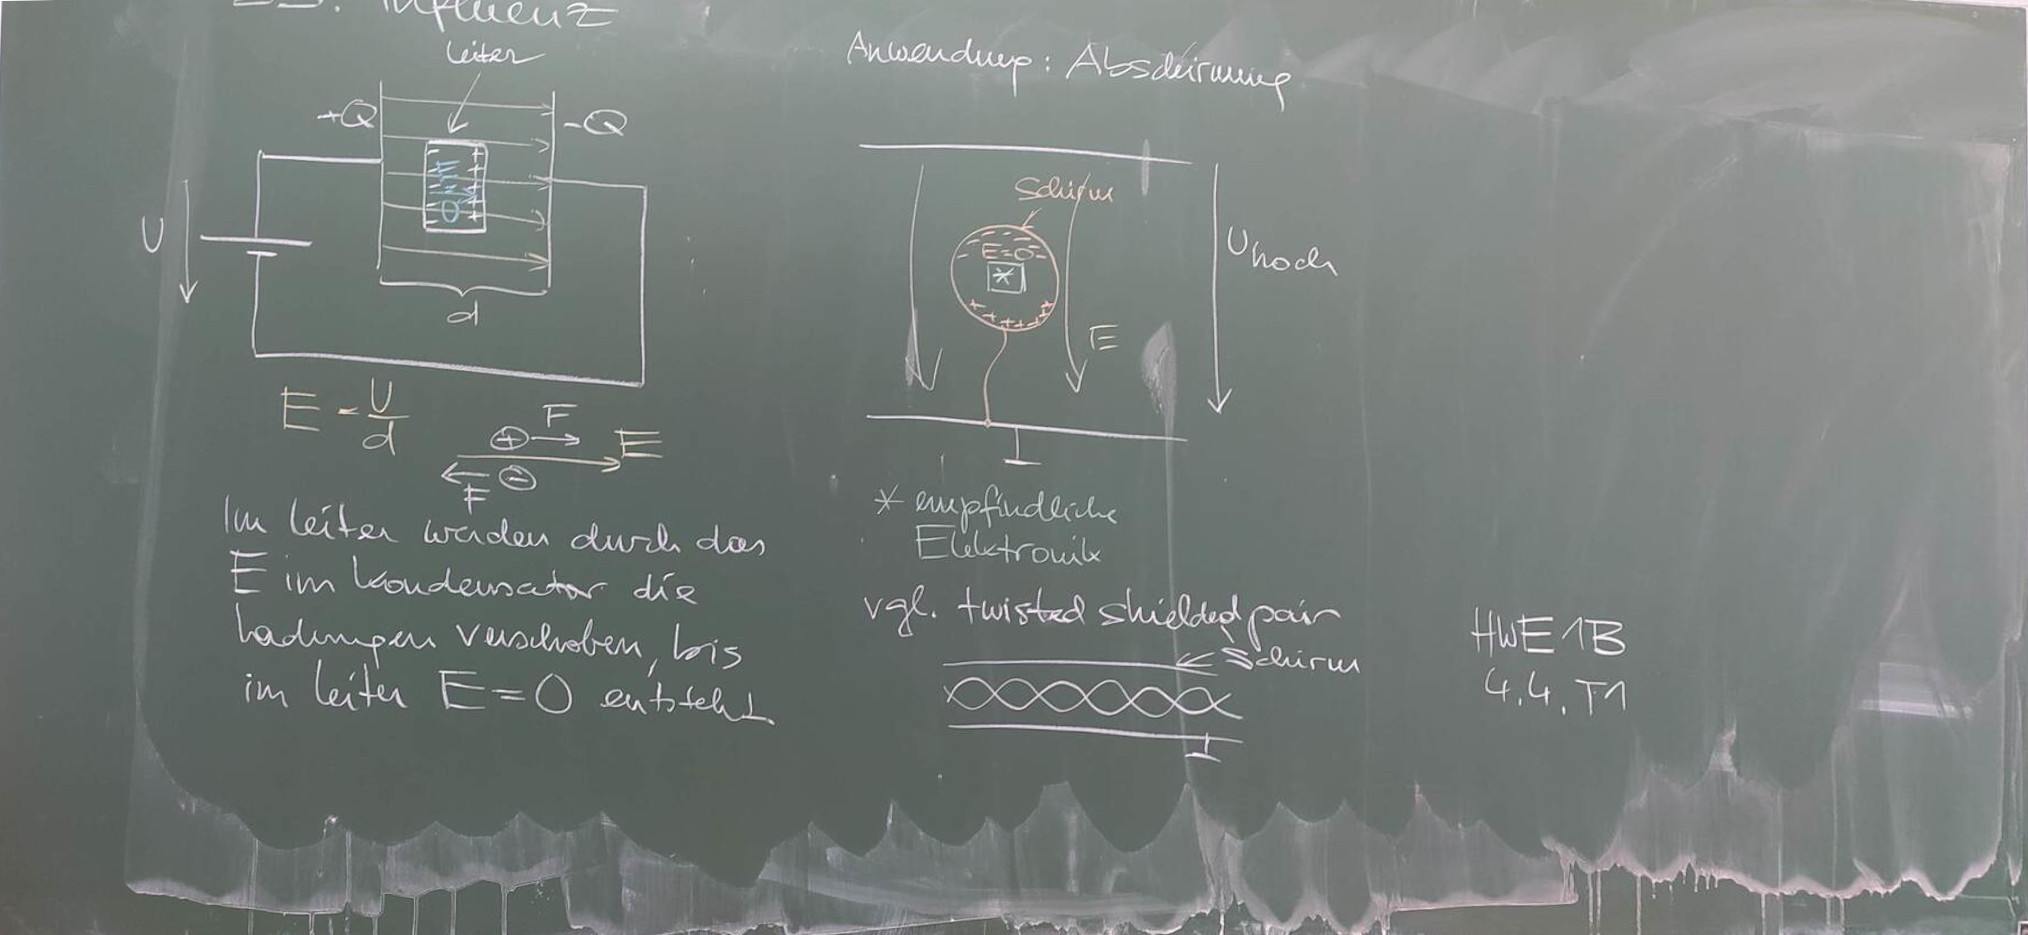 Influenz
Leiter
+Q
-Q
E=0
U
d
E = U/d
F
E
F
Im Leiter werden durch das
E im Kondensator die
Ladungen verschoben, bis
im Leiter E=0 entsteht
Anwendung: Abschirmung
Schirm
E=0
*
Uhoch
E
* empfindliche
Elektronik
vgl. twisted shielded pair
Schirm
HWE1B
4.4. T1